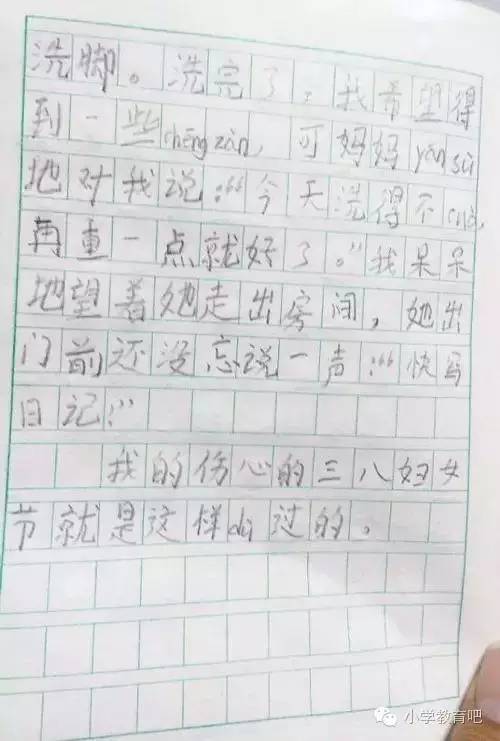 洗脚。洗完了，我希望得
到一些chēng zàn，可妈妈yán sù
地对我说：“今天洗得不cuò，
再重一点就好了。”我呆呆
地望着她走出房间，她出
门前还没忘说一声：“快写
日记！”
我的伤心的三八妇女
节就是这样dù过的。
小学教育吧